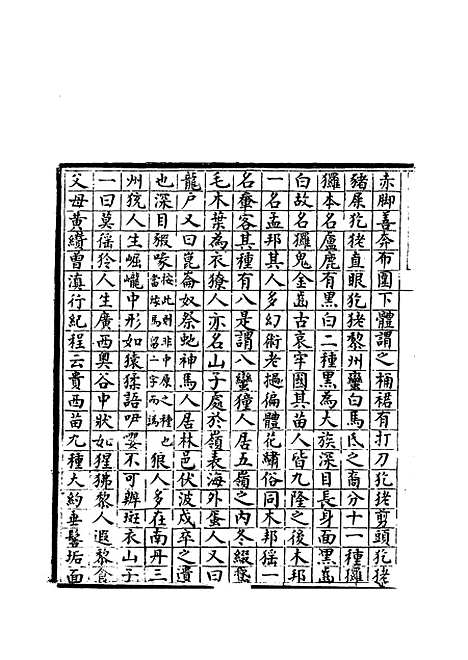 赤脚善奔布圍下體謂之桶裙有打刀犵狫剪頭犵狫
豬屎犵狫直眼犵狫黎州蠻白馬氐之裔分十一種玀
玀本名盧鹿有黑白二種黑為大族深目長身面黑齒
白故名玀鬼金齒古哀牢國其苗人皆九隆之後木邦
一名孟邦其人多幻術老撾徧體花繡俗同木邦猺一
名輋客其種有八是謂八蠻獞人居五嶺之內冬綴
毛木葉為衣獠人亦名山子處於嶺表海外蛋人又曰
龍戶又曰崑崙奴祭蛇神馬人居林邑伏波戍卒之遺
也深目猳喙按此則非中原之種也當時馬留二字而譌狼人多在南丹三
州獞人生巖巄中形如猿猱語咿嚶不可辦斑衣山子
一曰莫徭狑人生廣西奥谷中狀如猩狒黎人遐黎食
父母黄纘曽滇行紀程云貴西苗九種大約垂髻垢面